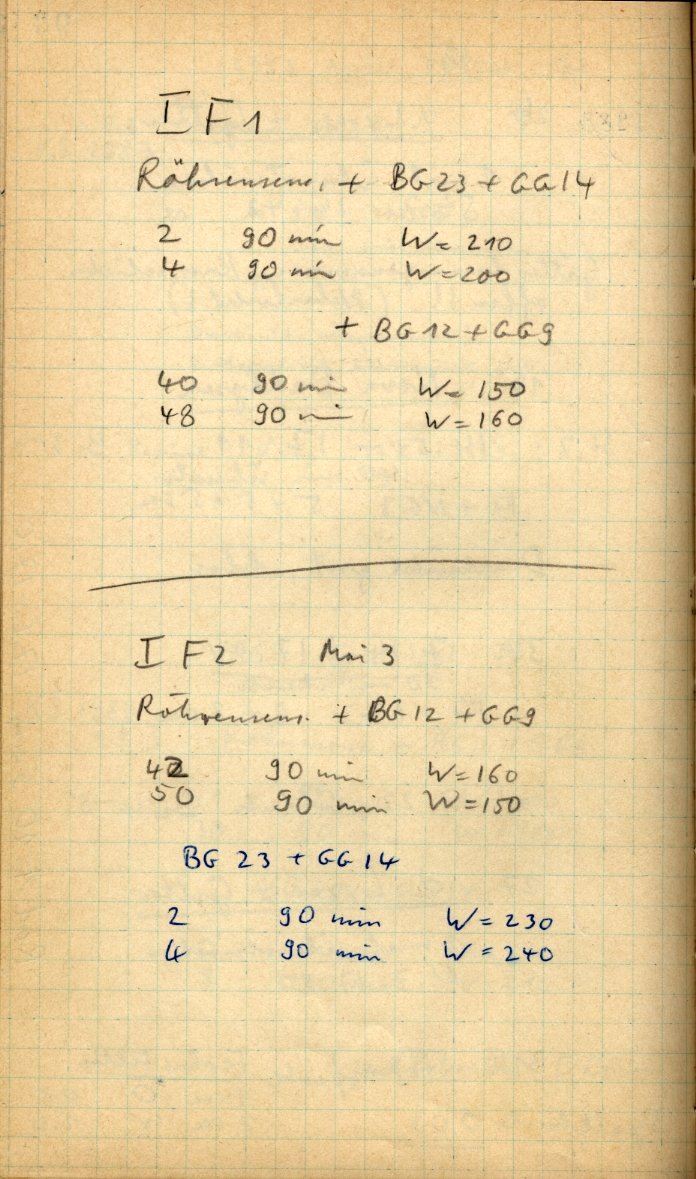 I F1
Röhrensens. + BG23 + GG14
2 90 min W = 210
4 90 min W = 200
+ BG12 + GG9
40 90 min W = 150
48 90 min W = 160
I F2 Mai 3
Röhrensens. + BG12 + GG9
42 90 min W = 160
50 90 min W = 150
BG 23 + GG14
2 90 min W = 230
4 90 min W = 240